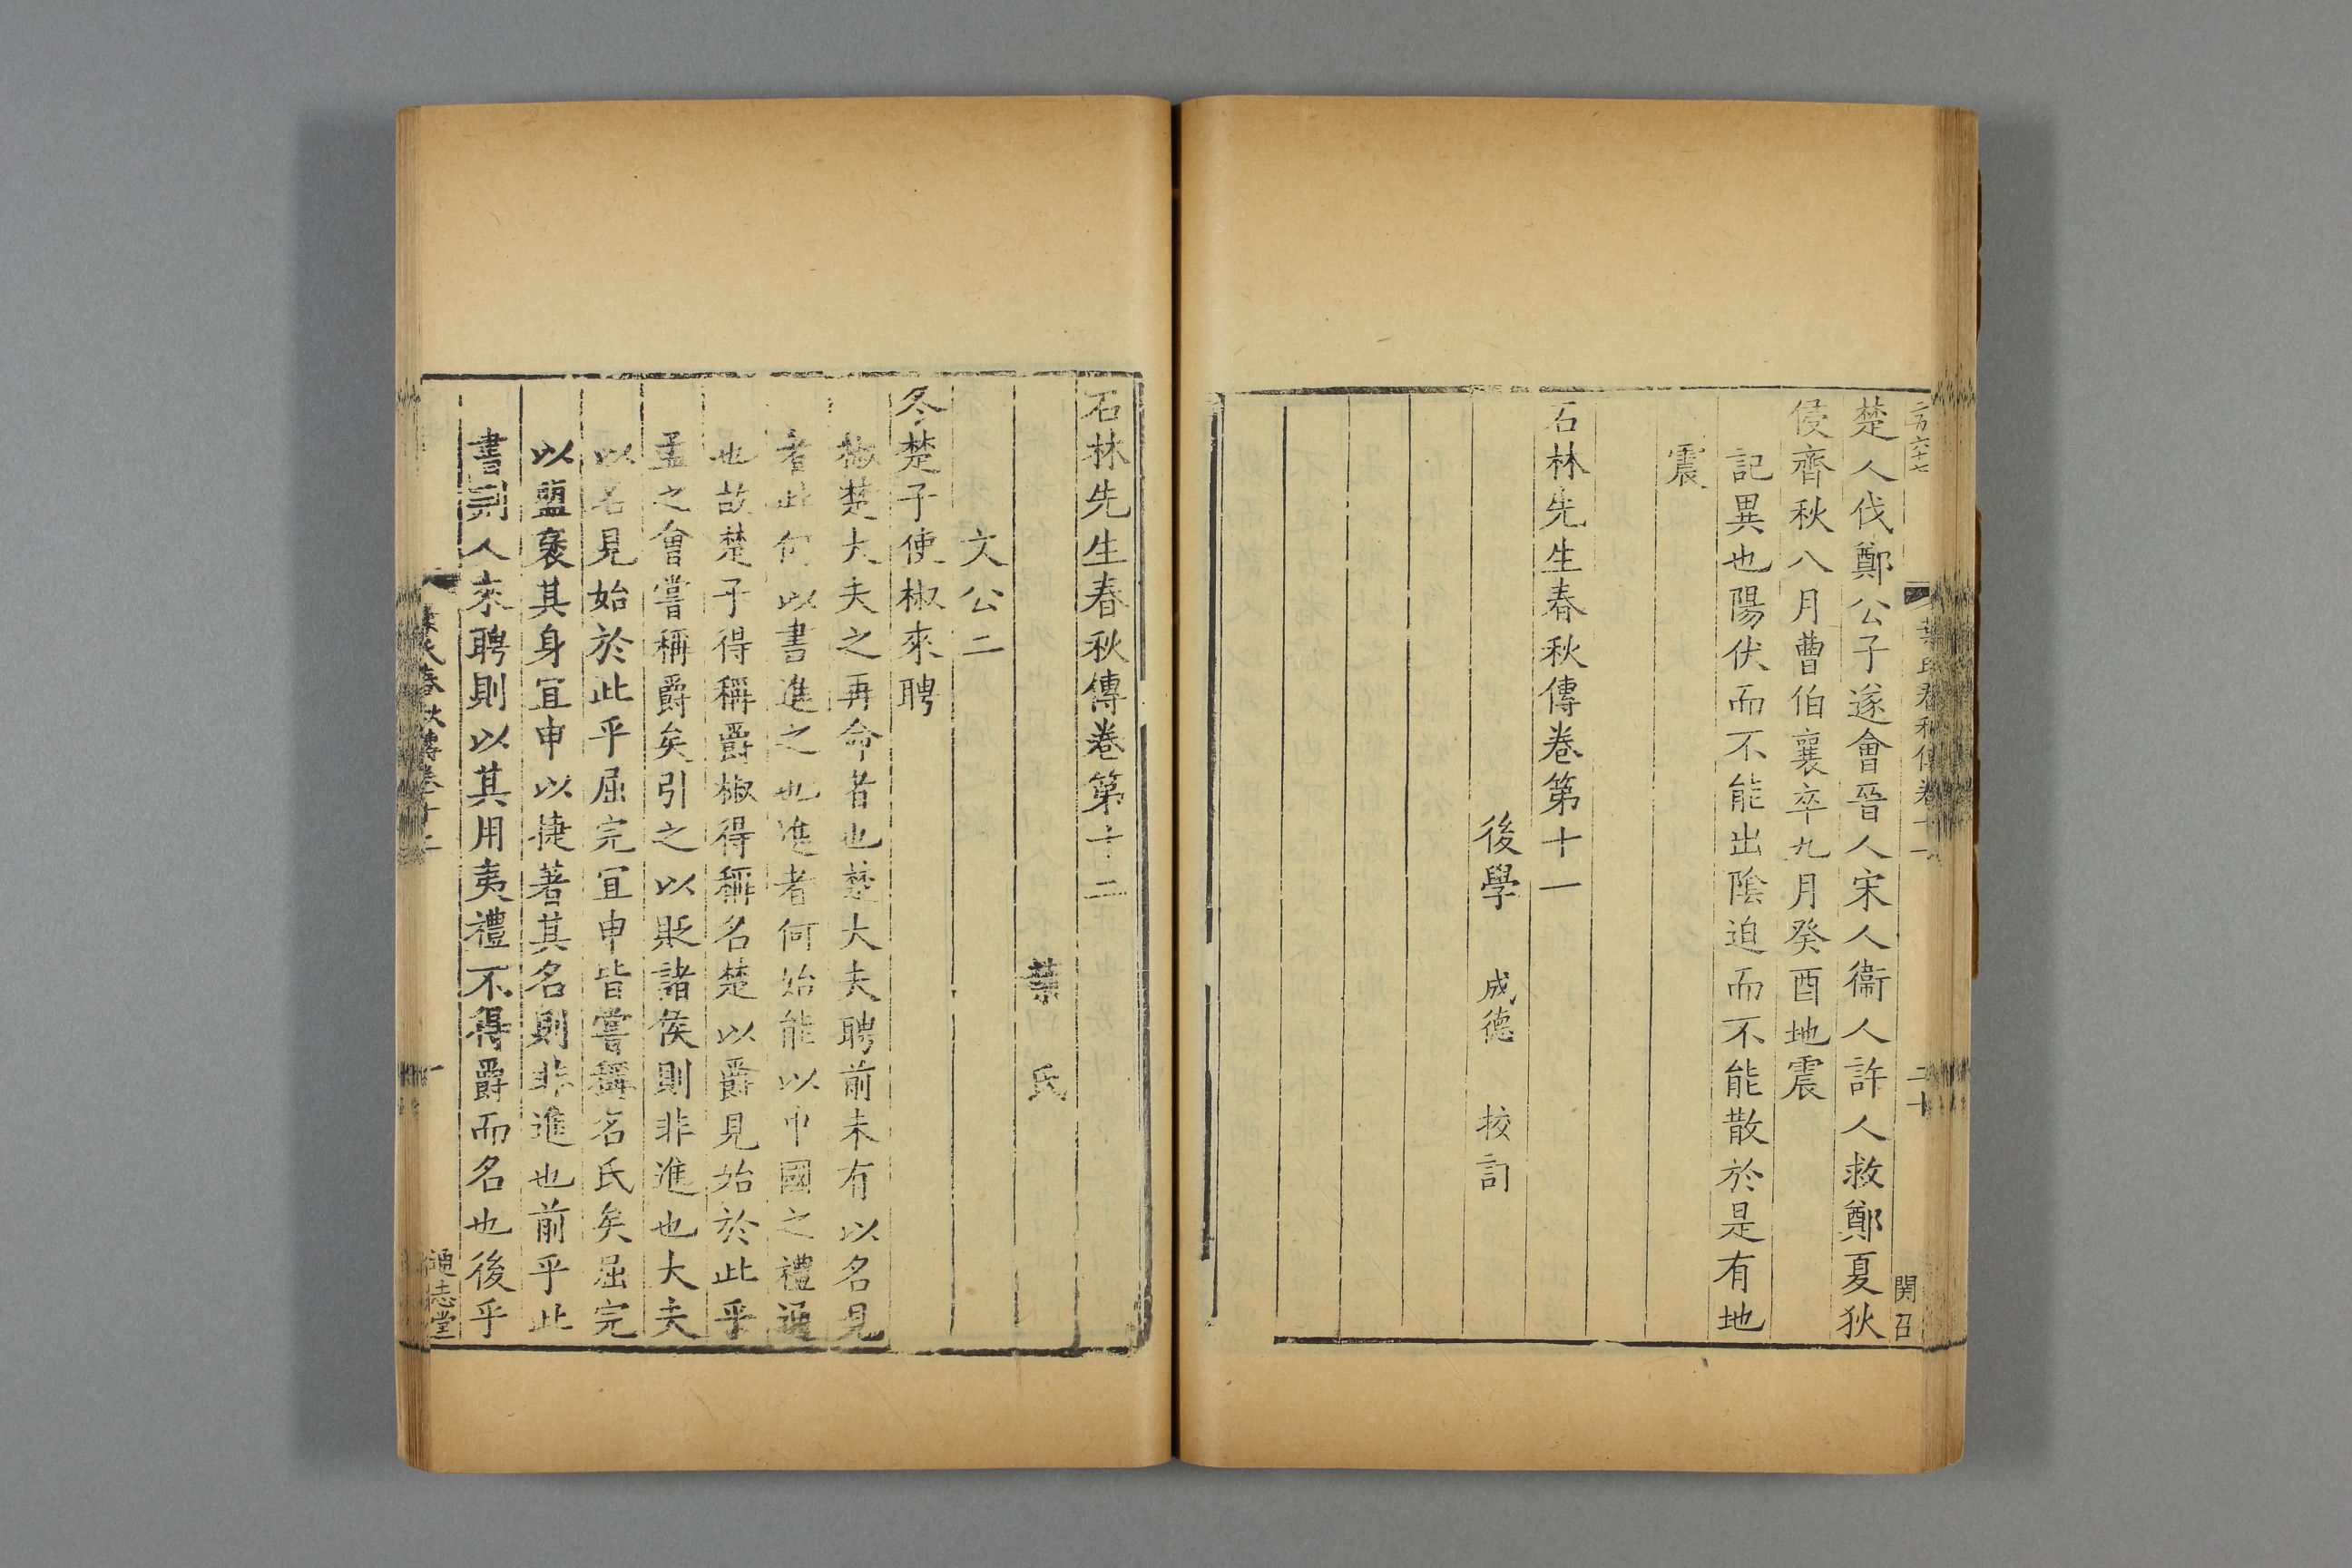 二百六十七
楚人伐鄭公子遂會晉人宋人衞人許人救鄭夏狄
侵齊秋八月曹伯襄卒九月癸酉地震
記異也陽伏而不能出陰迫而不能散於是有地
震
石林先生春秋傳卷第十一
後學 成德 校訂
葉氏春秋傳卷十一
二十
関召
石林先生春秋傳卷第十二
葉 氏
文公二
冬楚子使椒來聘
椒楚大夫之再命者也楚大夫聘前未有以名見
者此何以書進之也進者何始能以中國之禮通
也故楚子得稱爵椒得稱名楚以爵見始於此乎
盂之會嘗稱爵矣引之以貶諸侯則非進也大夫
以名見始於此乎屈完冝申皆嘗稱名氏矣屈完
以盟褒其身冝申以捷著其名則非進也前乎此
書荆人來聘則以其用夷禮不得爵而名也後乎
葉氏春秋傳卷十二
一
通志堂